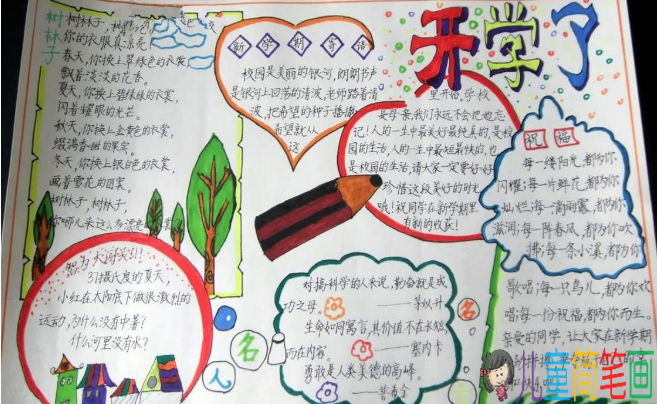 开学了
树林子
树林子,树林子,
你的衣服真漂亮
春天,你换上翠绿色的衣裳,
飘着淡淡的花香。
夏天,你换上碧绿绿的衣裳,
闪着耀眼的光芒。
秋天,你换上金黄色的衣裳,
缀满香甜的果实。
冬天,你换上银白色的衣裳,
画着雪花的图案。
树林子,树林子,
你哪儿来这么多漂亮
新学期寄语
校园是美丽的银河,朗朗书声
是银河上回荡的清波,老师踏着清
波,把希望的种子播撒
希望就从
这
里开始,学校
是母亲,我们永远不会把她忘
记!人的一生中最美好最快真的,是校
园的生活,人的一生中最短最快的,也
是校园的生活,请大家一定要好好
珍惜这段美好的时光
哦!祝同学在新学期里
有新的收获!
祝福
每一缕阳光,都为你
闪耀;每一片鲜花,都为你
灿烂;每一滴雨露,都为你
滋润;每一阵春风,都为你吹
拂;每一条小溪,都为你
歌唱;每一只鸟儿,都为你欢
唱;每一份祝福,都为你而生。
亲爱的同学,让大家在新学期
智力大闯关!!!
37摄氏度的夏天,
小红在太阳底下做很激烈的
运动,为什么没有中暑?
什么河里没有水?
名人名
对搞科学的人来说,勤奋就是成
功之母。 ——茅以升
生命如同寓言,其价值不在长短
而在内容。 ——塞内卡
勇敢是人类美德的高峰。
——普希金
儿童简笔画